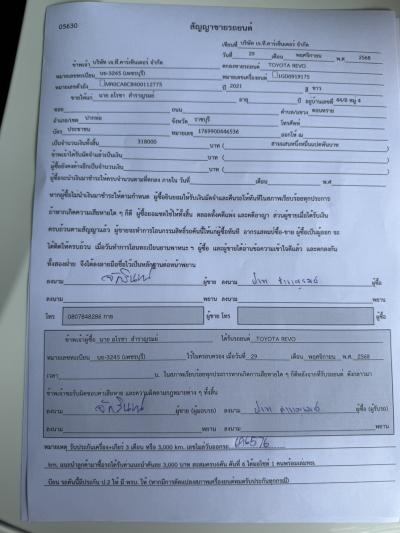 05630
สัญญาขายรถยนต์
เขียนที่ บริษัท เจ.ที.คาร์เซ็นเตอร์ จำกัด
วันที่ 29 เดือน พฤศจิกายน พ.ศ 2568
ข้าพเจ้า บริษัท เจ.ที.คาร์เซ็นเตอร์ จำกัด ตกลงขายรถยนต์ TOYOTA REVO
หมายเลขทะเบียน บธ-3245 (เพชรบุรี) หมายเลขเครื่องยนต์ 1GD0919175
หมายเลขตัวถัง ปี 2021 สี ขาว
ขายให้แก่ นาย อโรชา สำราญรมย์ อายุ ปี อยู่บ้านเลขที่ 44/8 หมู่ 4
ซอย ถนน ตำบล/แขวง ดอนทราย
อำเภอ/เขต ปากท่อ จังหวัด ราชบุรี โทรศัพท์
บัตร ประชาชน หมายเลข 1769900446536 ออกให้ ณ
เป็นจำนวนเงินทั้งสิ้น 318000 บาท ( สามแสนหนึ่งหมื่นแปดพันบาท )
ข้าพเจ้าได้รับมัดจำแล้วเป็นเงิน บาท ( )
ผู้ซื้อยังคงค้างอีกเป็นจำนวนเงิน บาท ( )
ผู้ซื้อจะนำเงินมาชำระให้ครบจำนวนตามที่ตกลง ภายใน วันที่ เดือน พ.ศ
หากผู้ซื้อไม่นำเงินมาชำระให้ตามกำหนด ผู้ซื้อยินยอมให้ริบเงินมัดจำและคืนรถให้ทันทีในสภาพเรียบร้อยทุกประการ
ถ้าหากเกิดความเสียหายใด ๆ ก็ดี ผู้ซื้อยอมชดใช้ให้ทั้งสิ้น ตลอดทั้งคดีแพ่ง และคดีอาญา ส่วนผู้ขายเมื่อได้รับเงิน
ครบถ้วนตามสัญญาแล้ว ผู้ขายจะทำการโอนกรรมสิทธิ์รถคันนี้ให้แก่ผู้ซื้อทันที อากรแสตมป์ซื้อ-ขาย ผู้ซื้อเป็นผู้ออก จะ
ทั้งสองฝ่าย จึงได้ลงลายมือชื่อไว้เป็นหลักฐานต่อหน้าพยาน
ลงนาม ผู้ขาย ลงนาม ผู้ซื้อ
ลงนาม พยาน ลงนาม พยาน
โทร 0807848288 กาย ผู้ขาย โทร ผู้ซื้อ
ข้าพเจ้าผู้ซื้อ นาย อโรชา สำราญรมย์ ได้รับรถยนต์ TOYOTA REVO
หมายเลขทะเบียน บธ-3245 (เพชรบุรี) ไว้ในครอบครอง เมื่อวันที่ 29 เดือน พฤศจิกายน พ.ศ. 2568
เวลา น. ในสภาพเรียบร้อยทุกประการหากเกิดความเสียหายใด ๆ ก็ดีหลังจากที่รับรถยนต์ ดังกล่าวมา
ข้าพเจ้าจะรับผิดชอบความเสียหาย และความผิดตามกฎหมายต่าง ๆ ทั้งสิ้น
ลงนาม ผู้ขาย (ผู้มอบรถ) ลงนาม ผู้ซื้อ (ผู้รับรถ)
ลงนาม พยาน ลงนาม พยาน
หมายเหตุ รับประกันเครื่อง+เกียร์ 3 เดือน หรือ 3,000 km. เลขไมล์วันออกรถ
km. แนะนำลูกค้ามาซื้อรถได้รับค่าแนะนำคันละ 3,000 บาท